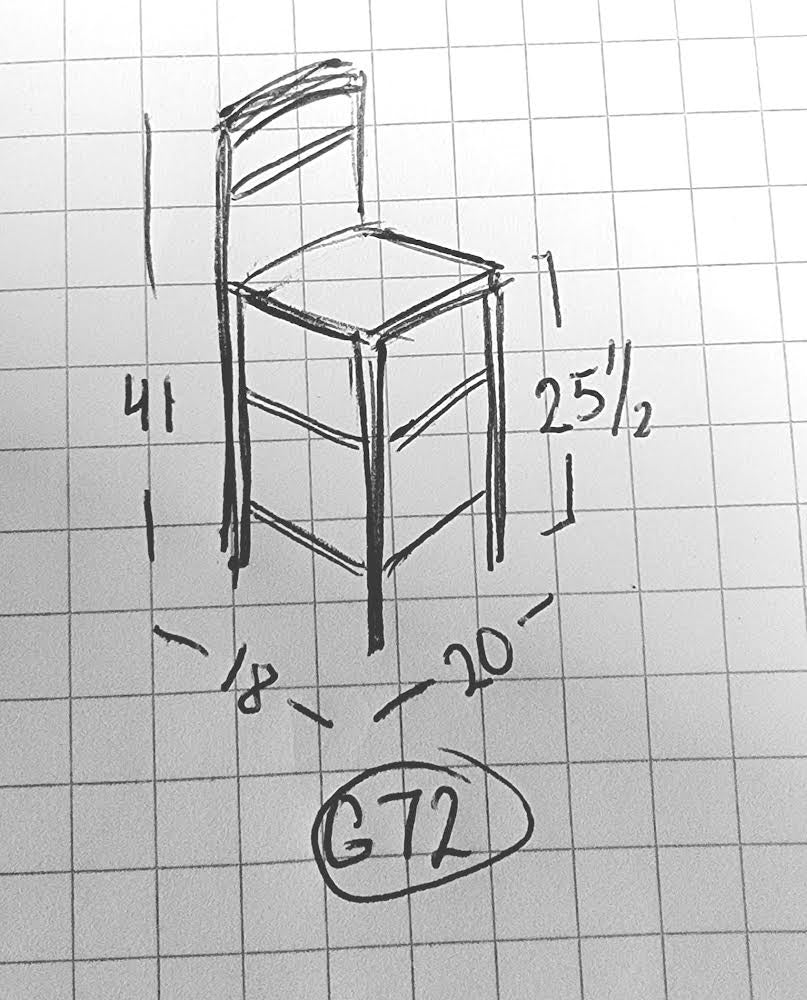 41
25 1/2
18
20
G72